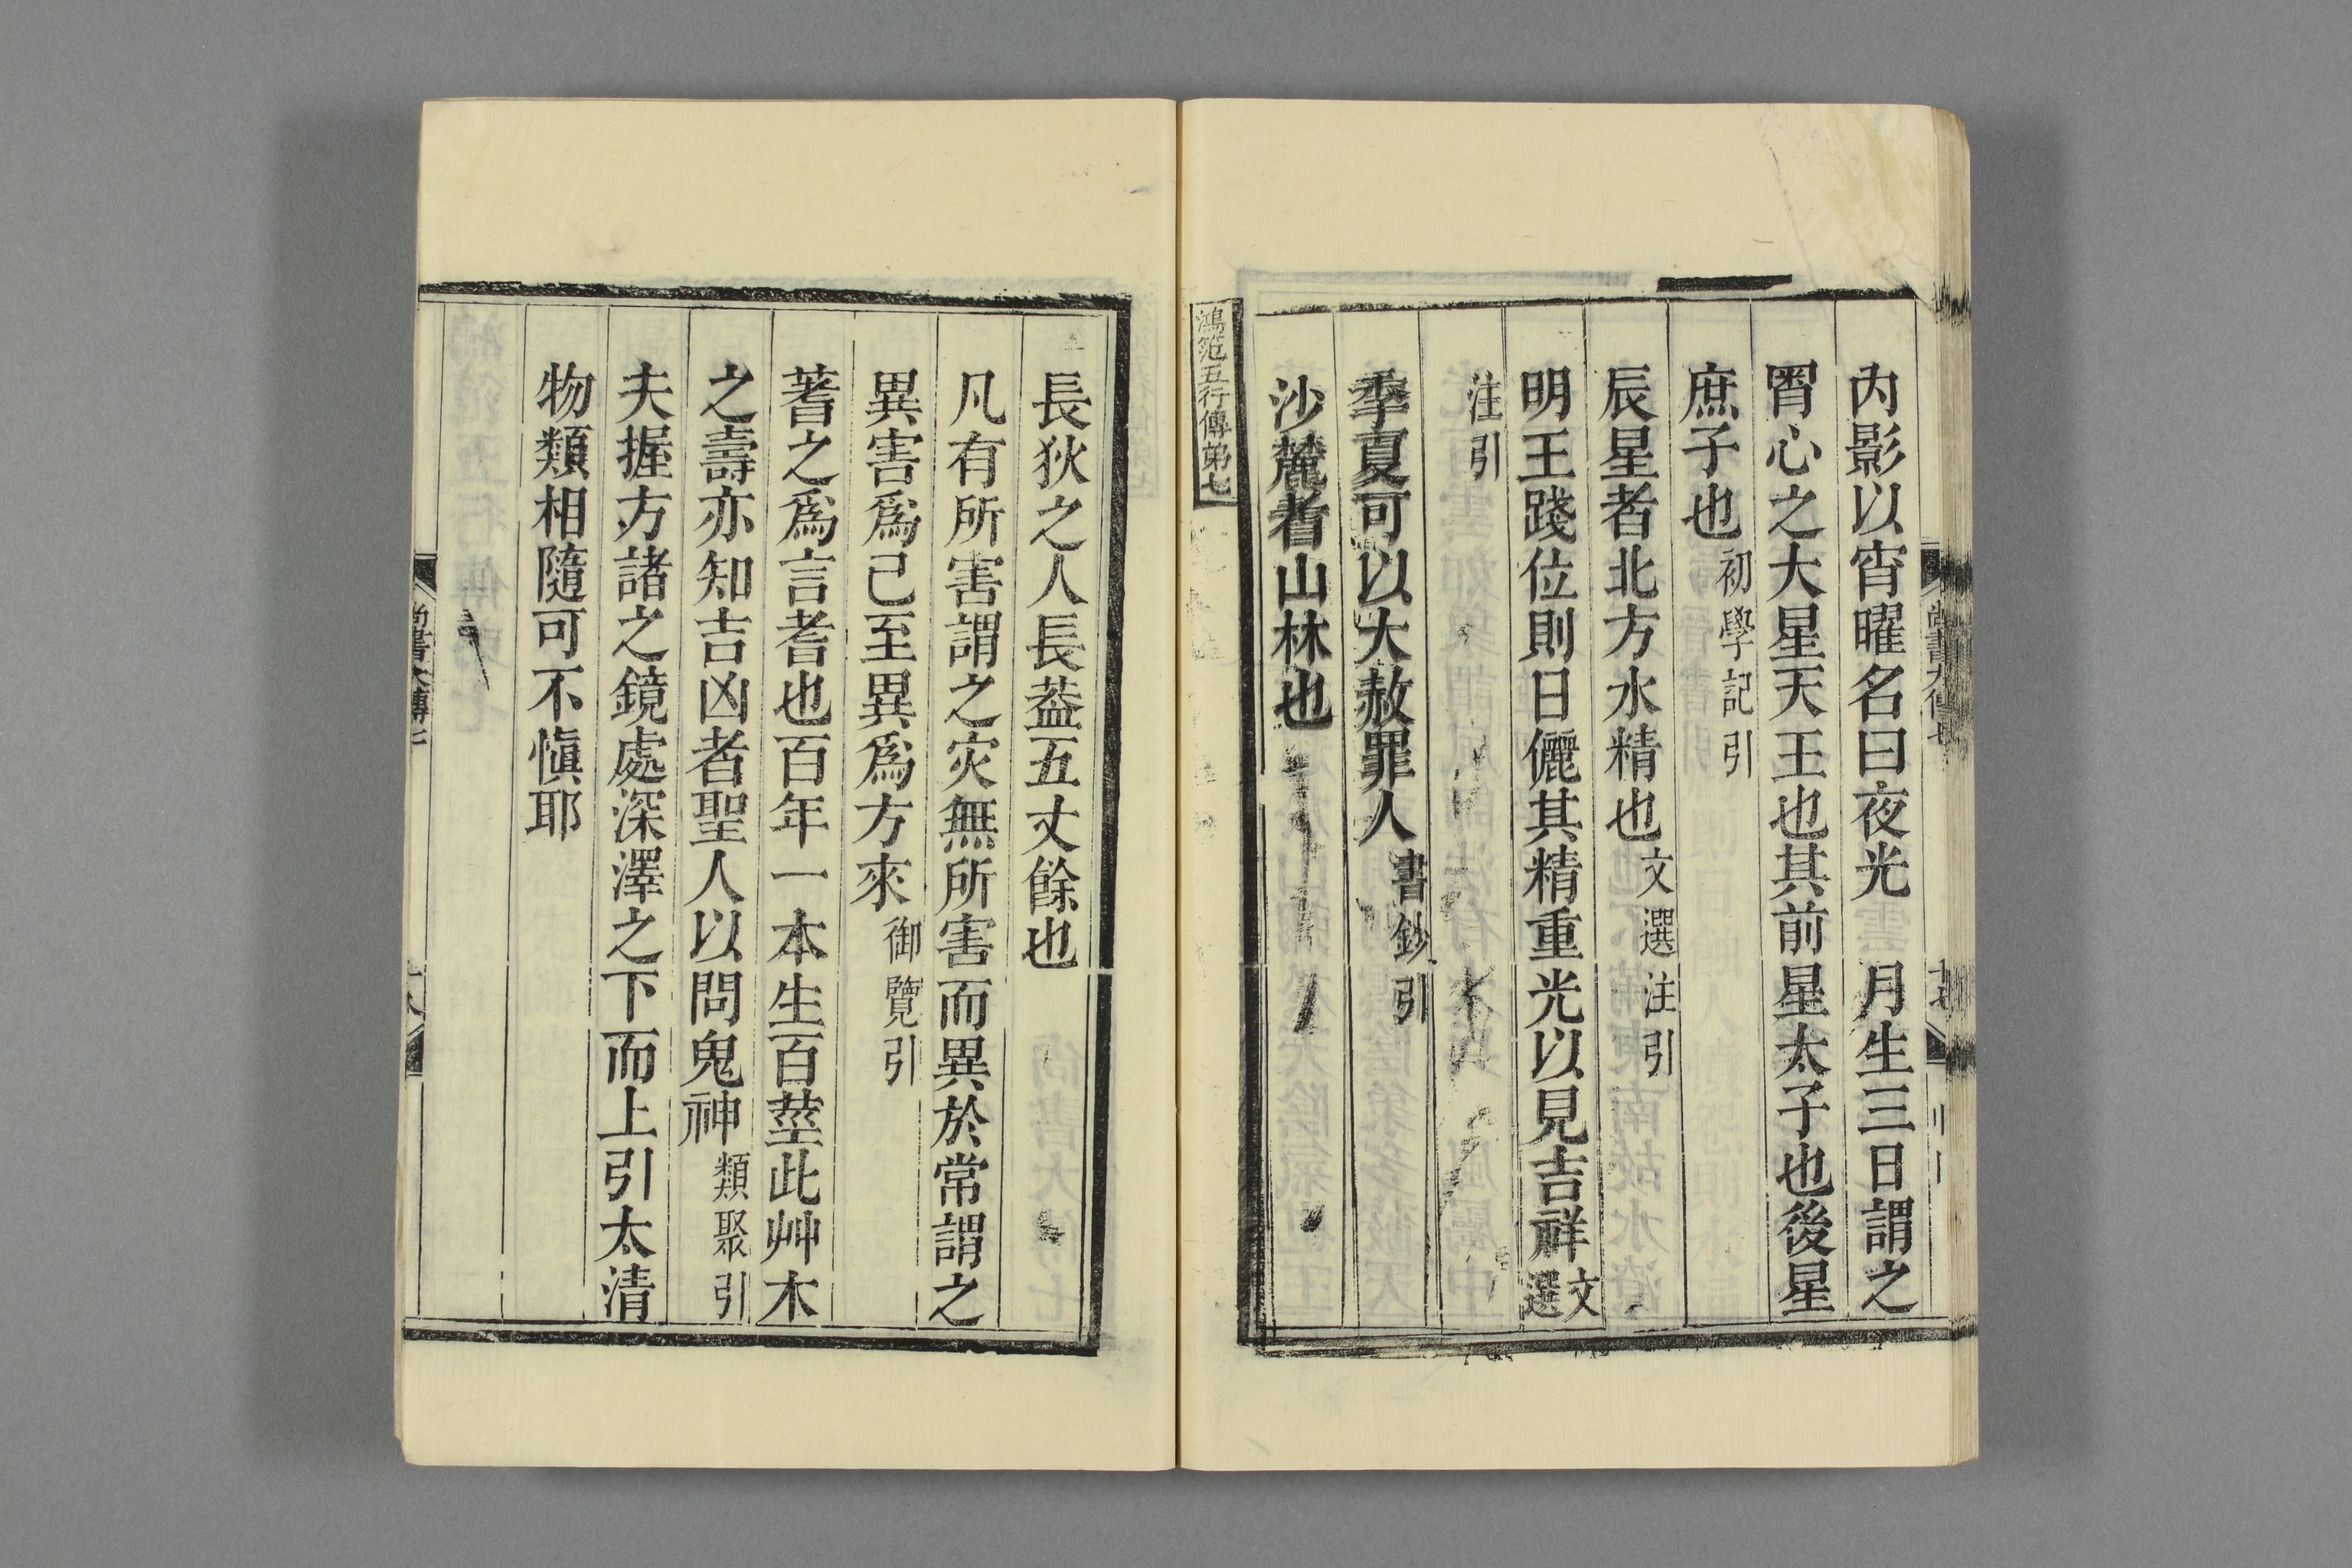 內影以宵曜名曰夜光　月生三日謂之
宵心之大星天王也其前星太子也後星
庶子也初學記引
辰星者北方水精也文選注引
明王踐位則日儷其精重光以見吉祥文選
注引
季夏可以大赦罪人書鈔引
沙麓者山林也
鴻范五行傳弟七
長狄之人長葢五丈餘也
凡有所害謂之灾無所害而異於常謂之
異害爲已至異爲方來御覽引
蓍之爲言耆也百年一本生百莖此艸木
之壽亦知吉凶者聖人以問鬼神類聚引
夫握方諸之鏡處深澤之下而上引太清
物類相隨可不慎耶
尚書大傳七